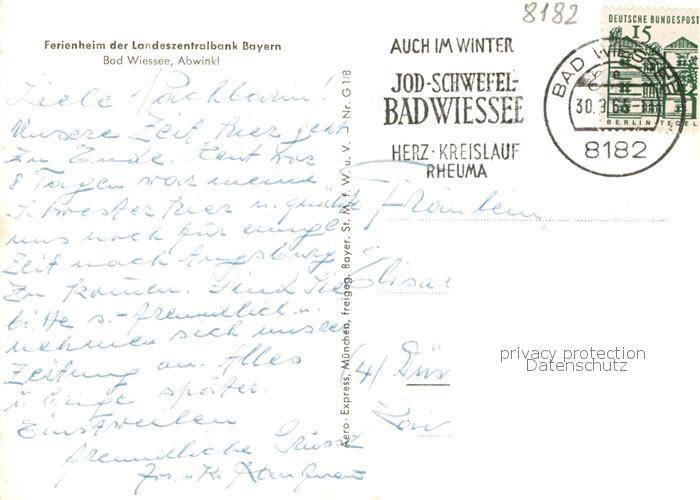 8182
Ferienheim der Landeszentralbank Bayern
Bad Wiessee, Abwinkl
AUCH IM WINTER
JOD-SCHWEFEL-
BAD WIESSEE
HERZ · KREISLAUF
RHEUMA
BAD WIESSEE
30.9.65
8182
DEUTSCHE BUNDESPOST
15
BERLIN TEGEL
Liebe Nachbarin!
Unsere Zeit hier geht
zu Ende. Heut vor
8 Tagen war meine
Schwester hier u.
uns noch für einige
Zeit nach Augsburg
zu kommen. Sind Sie
bitte s. freundlich u.
nehmen sich unsrer
Zeitung an. Alles
ü. Einge später.
Einstweilen
freundliche Grüsse
Fräulein
Elisa
(4) Düs
Aero-Express, München, freigeg. Bayer. St. M. f. W. u. V. Nr. G 1/8
privacy protection
Datenschutz